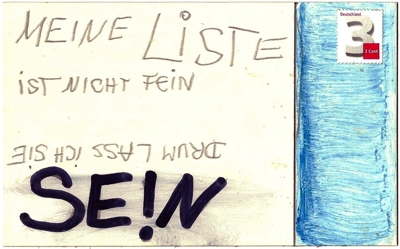 MEINE LiSTE
iST NICHT FEIN
DRUM LASS ICH SIE
SE!N
Deutschland
3
3 Cent